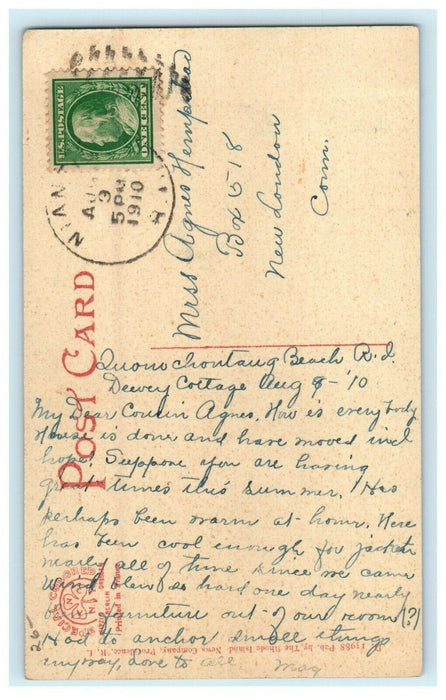 U.S. POSTAGE
ONE CENT
NIAN
AUG
9
5 PM
1910
R.I.
Miss Agnes Hempstead
Box 518
New London
Conn.
POST CARD
Quonochontaug Beach R.I.
Dewey Cottage Aug 8-'10
My Dear Cousin Agnes. How is everybody
House is done and have moved in I
hope. Suppose you are having
great times this summer. Has
perhaps been warm at home. Here
has been cool enough for jackets
nearly all of time since we came
Wind blew so hard one day nearly
furniture out of our room (?)
Had to anchor things
anyway, love to all. May
11988 Pub. by The Rhode Island News Company, Providence, R. I.
Printed in